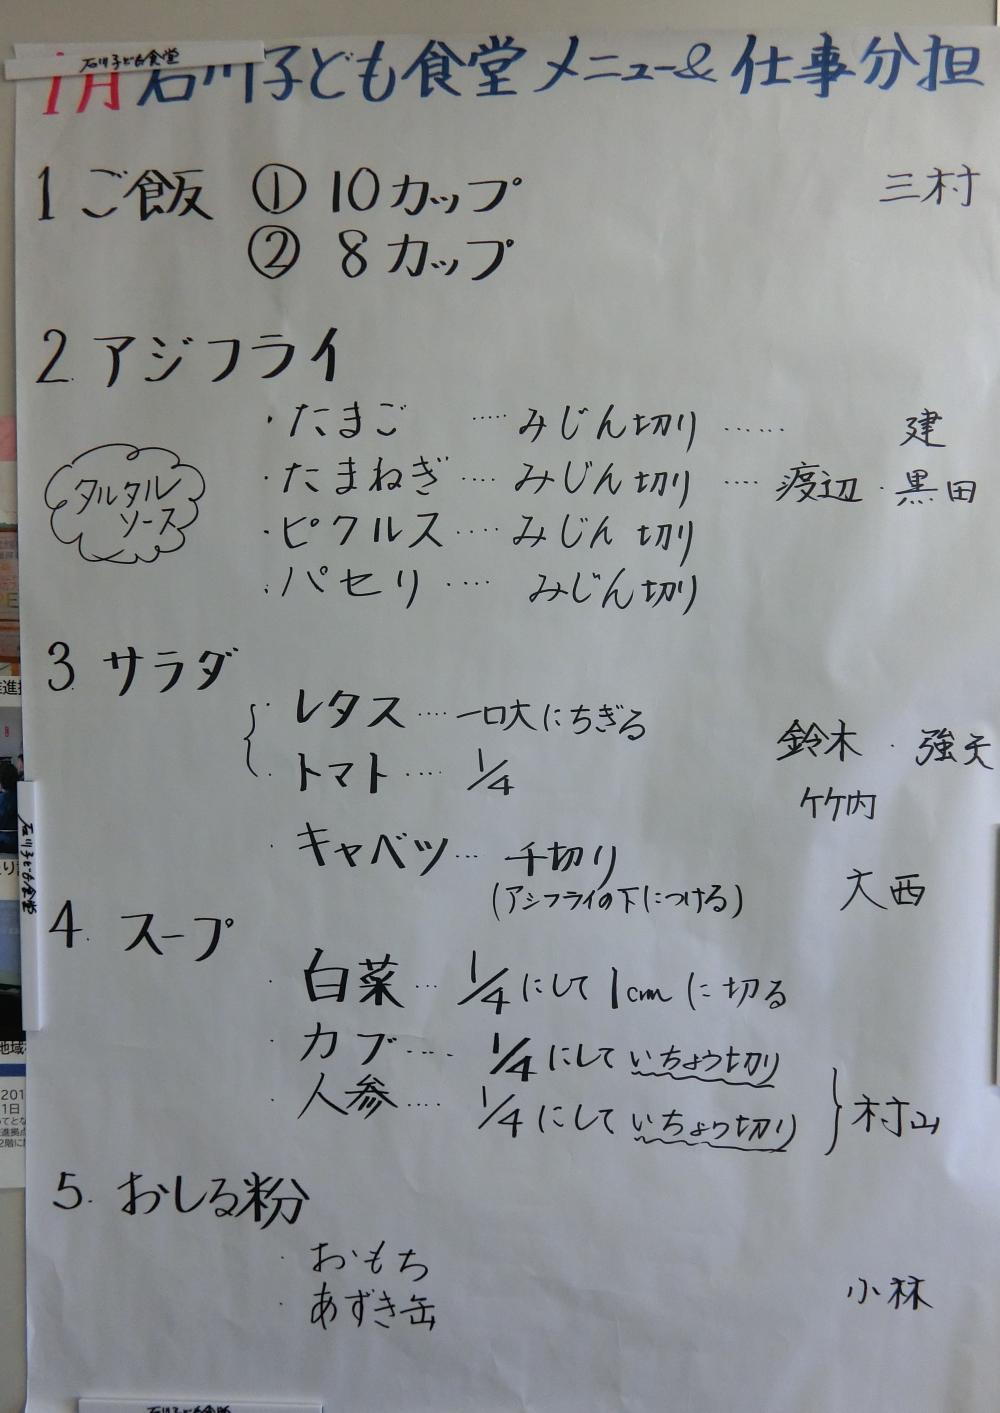 石川子ども食堂
1月 石川子ども食堂 メニュー& 仕事分担
1 ご飯 ① 10カップ 三村
② 8カップ
2. アジフライ
・たまご ····· みじん切り ······ 建
タルタルソース
・たまねぎ ···· みじん切り ···· 渡辺・黒田
・ピクルス ···· みじん切り
・パセリ ···· みじん切り
3 サラダ
・レタス ···· 一口大にちぎる
鈴木・強矢
・トマト ···· 1/4
竹内
・キャベツ ··· 千切り
(アジフライの下につける) 大西
石川子ども食堂
4. スープ
・白菜 ··· 1/4にして1cmに切る
・カブ ···· 1/4にしていちょう切り
・人参 ···· 1/4にしていちょう切り 村山
5. おしる粉
・おもち
・あずき缶 小林
石川子ども食堂